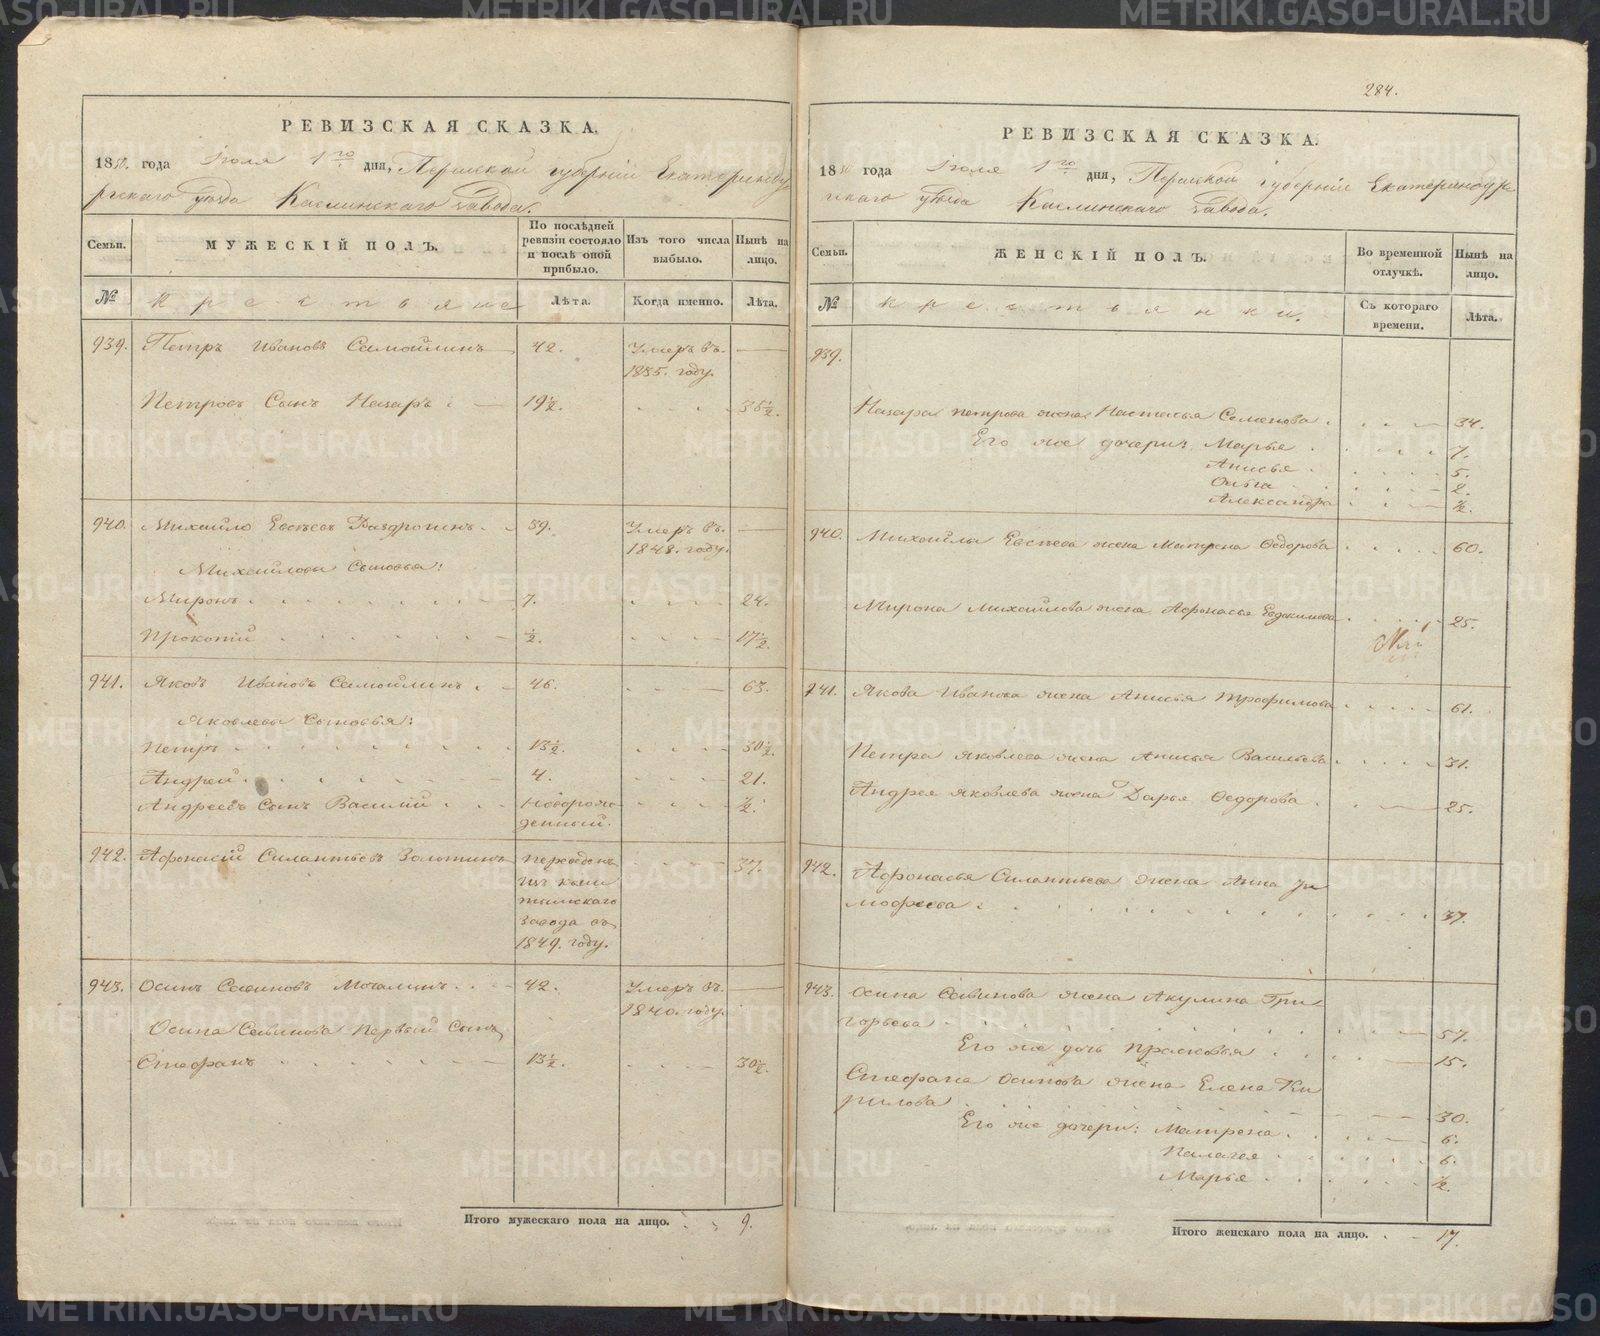 284.
РЕВИЗСКАЯ СКАЗКА.
1850. года Июля 1го дня, Пермской губернiи Екатеринбу
ргскаго уѣзда Каслинскаго Завода.
Семьи.
МУЖЕСКIЙ ПОЛЪ.
По послѣдней ревизiи состояло и послѣ оной прибыло.
Изъ того числа выбыло.
Нынѣ на лицо.
№
Крестьяне
Лѣта.
Когда именно.
Лѣта.
939. Петръ Ивановъ Самойлинъ 42. Умеръ въ 1835. году.
Петровъ Сынъ Назаръ 19½. 35½.
940. Михайло Евсѣевъ 59. Умеръ въ 1848. году.
Михайловы Сыновья:
Миронъ 7. 24.
Прокопiй ½. 17½.
941. Яковъ Ивановъ Самойлинъ 46. 63.
Яковлевы Сыновья:
Петръ 13½. 30½.
Андрей 4. 21.
Андреевъ Сынъ Василiй Новорожденный. ½.
942. Афонасiй Силантьевъ Золотинъ Переведенъ изъ Кыштымскаго Завода въ 1849. году. 37.
943. Осипъ Савиновъ Мочалинъ 42. Умеръ въ 1840. году.
Осипа Савинова Первый Сынъ
Стефанъ 13½. 30½.
Итого мужескаго пола на лицо. 9.
РЕВИЗСКАЯ СКАЗКА.
1850 года Июля 1го дня, Пермской губернiи Екатеринбур
гскаго уѣзда Каслинскаго Завода.
Семьи.
ЖЕНСКIЙ ПОЛЪ.
Во временной отлучкѣ.
Нынѣ на лицо.
№
Крестьянки.
Съ котораго времени.
Лѣта.
939.
Назара Петрова жена Настасья Семенова 34.
Его же дочери: Марья 7.
Анисья 5.
Ольга 2.
Александра ½.
940. Михайлы Евсѣева жена Матрена Федорова 60.
Мирона Михайлова жена Афонасья Евдокимова 25.
941. Якова Иванова жена Анисья Трофимова 61.
Петра Яковлева жена Анисья Васильева 31.
Андрея Яковлева жена Дарья Федорова 25.
942. Афонасья Силантьева жена Анна Ти
мофеева 37.
943. Осипа Савинова жена Акулина Гри
горьева 57.
Его же дочь Прасковья 15.
Стефана Осипова жена Елена Ки
рилова 30.
Его же дочери: Матрена 6.
Палагея 6.
Марья ½.
Итого женскаго пола на лицо. 17.
METRIKI.GASO-URAL.RU